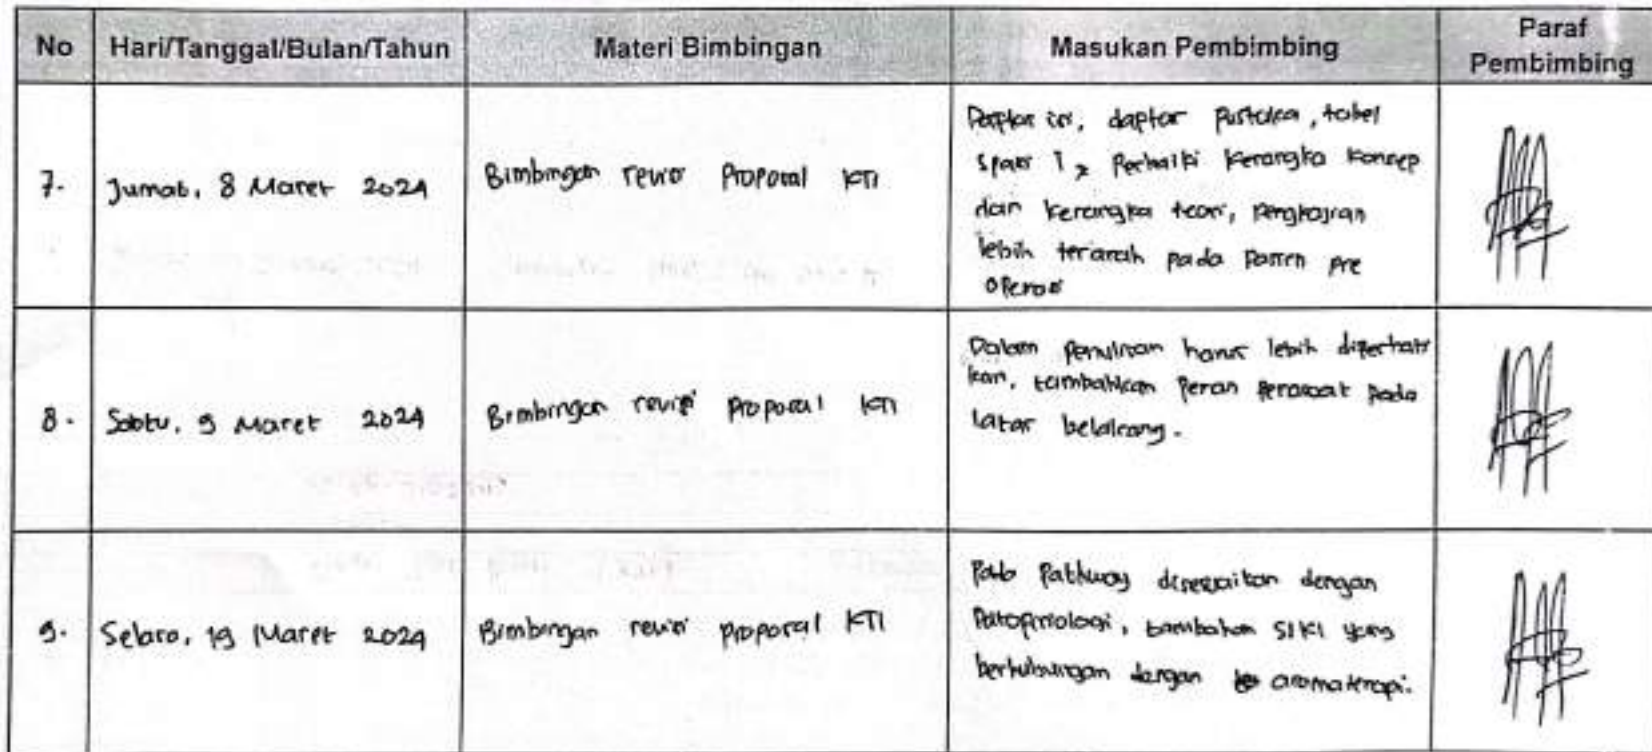 No Hari/Tanggal/Bulan/Tahun Materi Bimbingan Masukan Pembimbing Paraf Pembimbing
7. Jumat, 8 Maret 2024 Bimbingan revisi Proposal KTI
Daptar isi, daptar pustaka, tabel
spasi 1, Perbaiki kerangka konsep
dan kerangka teori, pengkajian
lebih terarah pada pasien pre
operasi
8. Sabtu, 9 Maret 2024 Bimbingan revisi proposal KTI
Dalam penulisan harus lebih diperhati
kan, tambahkan peran perawat pada
latar belakang.
9. Selasa, 19 Maret 2024 Bimbingan revisi proposal KTI
Pathway disesuaikan dengan
Patopisiologi, tambahan SIKI yang
berhubungan dengan aromaterapi.